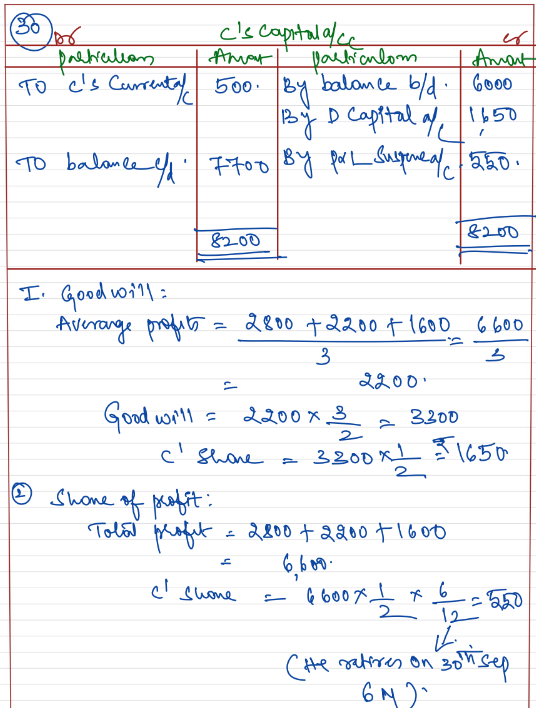 30
Dr C's Capital a/c Cr
Particulars Amount Particulars Amount
TO C's Current a/c 500. By balance b/d. 6000
By D Capital a/c 1650
TO balance c/d. 7700 By P&L Suspense a/c. 550.
8200 8200
I. Goodwill:
Average profits = 2800 + 2200 + 1600 / 3 = 6600 / 3
= 2200.
Goodwill = 2200 × 3/2 = 3300
C' Share = 3300 × 1/2 = ₹1650
2 Share of profit:
Total profit = 2800 + 2200 + 1600
= 6,600.
C' Share = 6600 × 1/2 × 6/12 = 550
(He retires on 30th Sep
6 M).